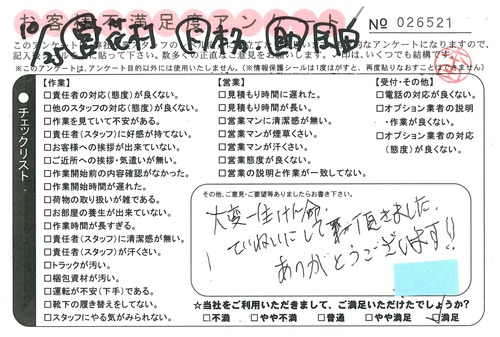 お客様不満足度アンケート
No 026521
10/23
このアンケートは
※このアンケートは、アンケート目的以外には使用いたしません。(※情報保護シールは1度はがすと、再度貼りなおすことはできません)
チェックリスト
【作業】
□責任者の対応(態度)が良くない。
□他のスタッフの対応(態度)が良くない。
□作業を見ていて不安がある。
□責任者(スタッフ)に好感が持てない。
□お客様への挨拶が出来ていない。
□ご近所への挨拶・気遣いが無い。
□作業開始前の内容確認がなかった。
□作業開始時間が遅れた。
□荷物の取り扱いが雑である。
□お部屋の養生が出来ていない。
□作業時間が長すぎる。
□責任者(スタッフ)に清潔感が無い。
□責任者(スタッフ)が汗くさい。
□トラックが汚い。
□梱包資材が汚い。
□運転が不安(下手)である。
□靴下の履き替えをしてない。
□スタッフにやる気がみられない。
【営業】
□見積もりに遅れた。
□見積もり時間が長い。
□営業マンに清潔感が無い。
□営業マンが煙草くさい。
□営業マンが汗くさい。
□営業態度が良くない。
□営業の説明と作業が一致してない。
【受付・その他】
□電話の対応が良くない。
□オプション業者の説明
・作業が良くない。
□オプション業者の対応
(態度)が良くない。
その他、ご意見・ご要望等ありましたらお書き下さい。
大変一生けん命
ていねいにして頂きました。
ありがとうございます!!
☆当社をご利用いただきまして、ご満足いただけたでしょうか?
□不満 □やや不満 □普通 □やや満足 □満足